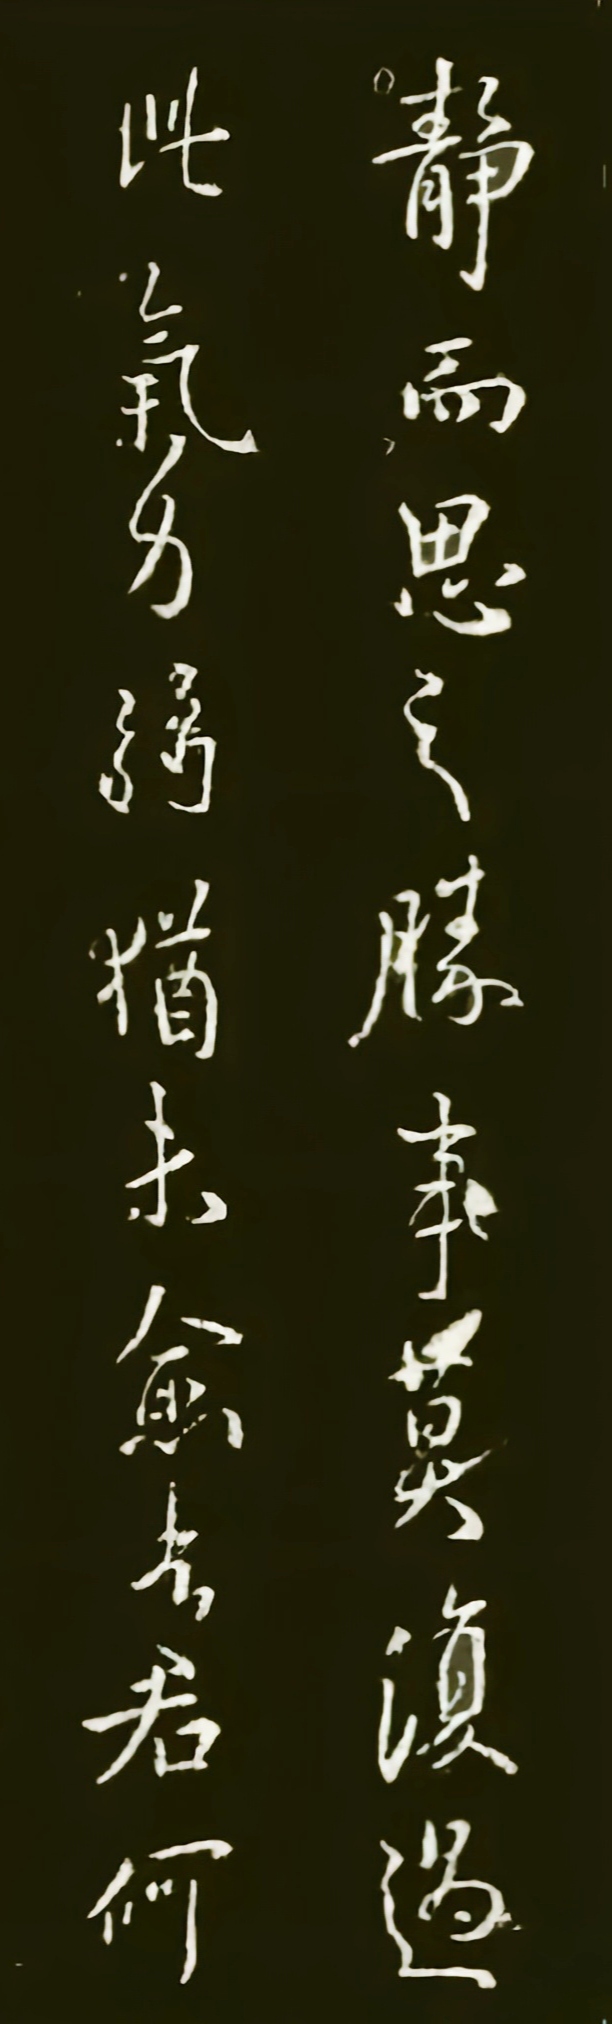 靜而思之勝事莫復過
此氣力弱猶未愈去君何